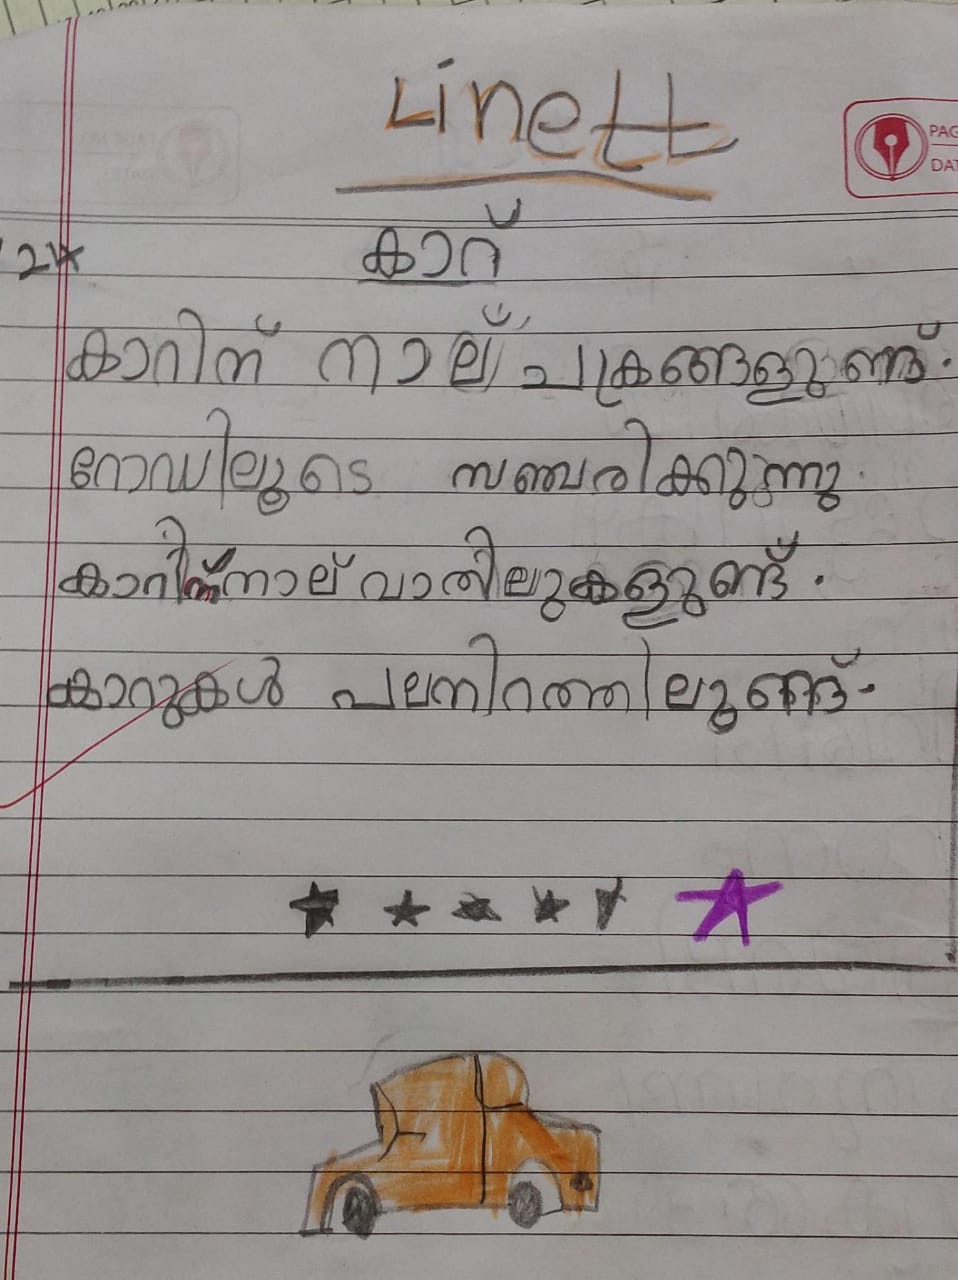 Linett
PAG
DAT
24
കാറ്
കാറിന് നാല് ചക്രങ്ങളുണ്ട്.
റോഡിലൂടെ സഞ്ചരിക്കുന്നു.
കാറിന് നാല് വാതിലുകളുണ്ട്.
കാറുകൾ പലനിറത്തിലുണ്ട്.